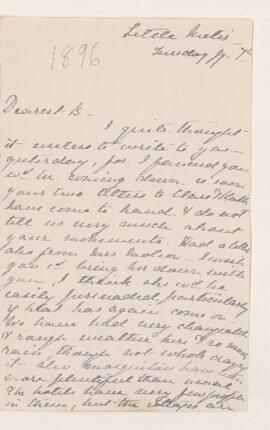 Little Metis
1896
Tuesday Jy. 7.
Dearest B -
I quite thought
it useless to write to you
yesterday, for I fancied you
wd be coming down so soon
your two letters to Clare &
have come to hand. & do not
tell us very much about
your movements. Had a letter
also from Mrs Molson - I wish
you cd bring her down with
you, I think she wd be
easily persuaded, particularly
if heat has again come on
We have had very changeable
& rough weather here & so much
rain, though not whole days
it. also mosquitoes have been
more plentiful than usual
The hotels have very few people
in them, but the cottages are